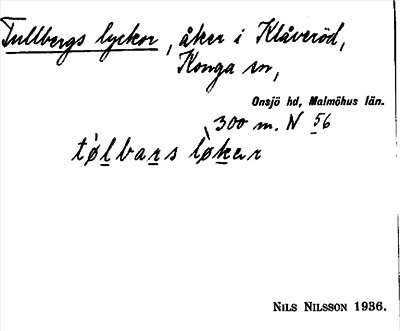 Tullbergs lyckor, åker i Klåveröd,
Konga sn,
Onsjö hd, Malmöhus län.
300 m. N 56
tø̀lbars lø̀ker
NILS NILSSON 1936.